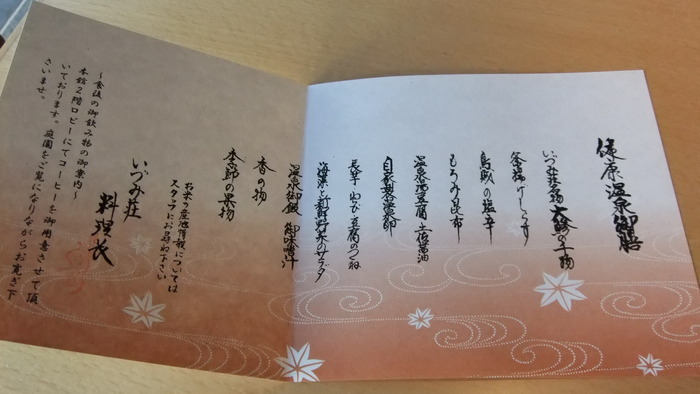 健康温泉御膳
いづみ荘名物 大鯵の干物
釜揚げしらす
烏賊の塩辛
もろみ昆布
温泉湯豆腐 土佐醤油
自家製温泉卵
長芋 わさび 豆腐のつね
海藻と新鮮野菜のサラダ
温泉御飯 御味噌汁
香の物
季節の果物
お米の産地情報については
スタッフにお尋ね下さい
いづみ荘
料理長
～食後の御飲み物の御案内～
本館2階ロビーにてコーヒーを御用意させて頂
いております。庭園をご覧になりながらお寛ぎ下
さいませ。